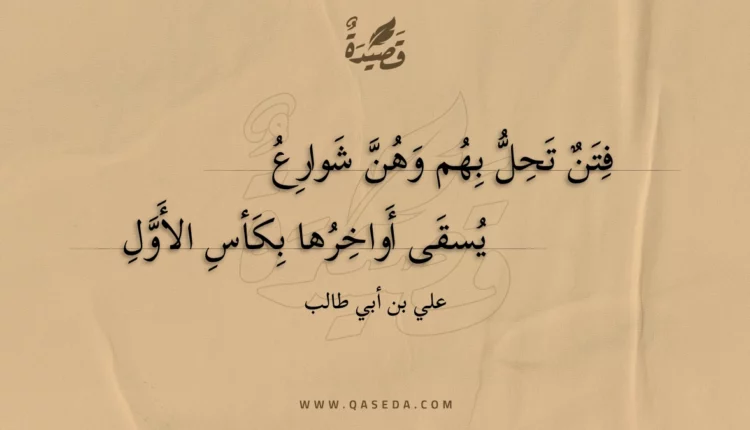 قَصِيْدَةٌ
فِتَنٌ تَحِلُّ بِهُم وَهُنَّ شَوارِعُ
يُسقَى أَواخِرُها بِكَأسِ الأَوَّلِ
علي بن أبي طالب
WWW.QASEDA.COM